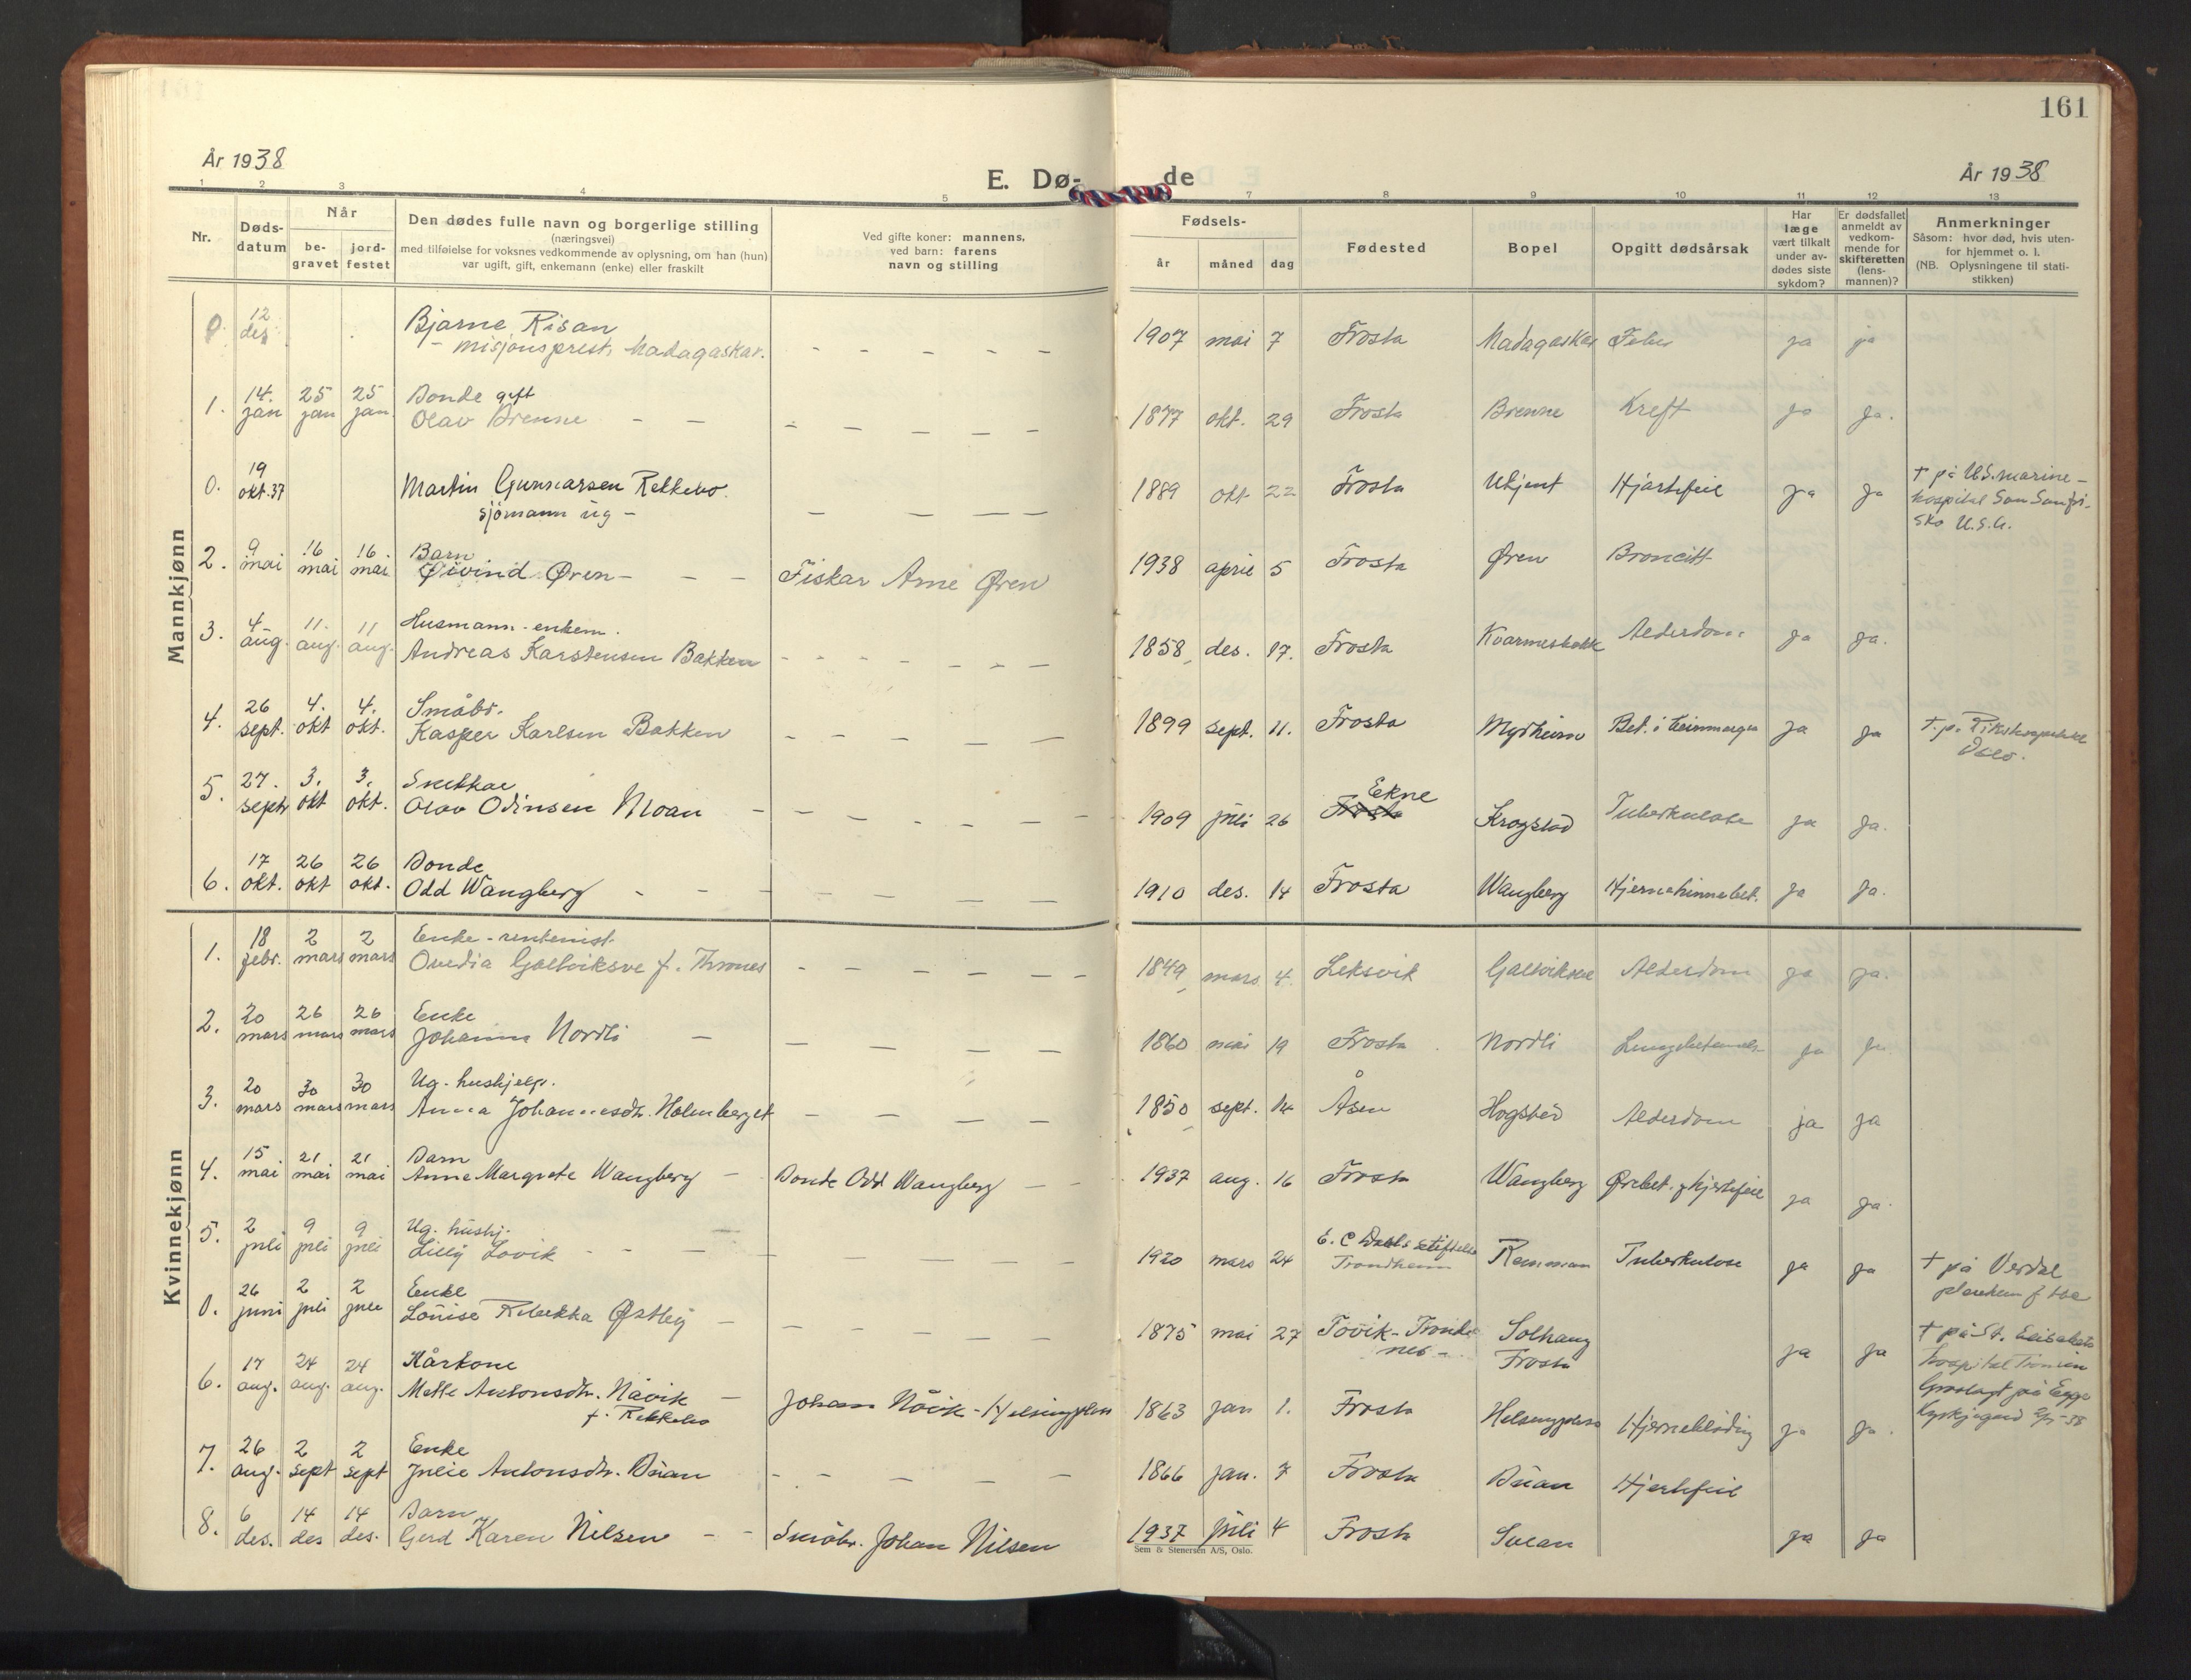 161
År 1938
E. Dø-
de
År 1938
1 2 3 4 5 7 8 9 10 11 12 13
Nr.
Døds-
datum
Når
be-
gravet
jord-
festet
Den dødes fulle navn og borgerlige stilling
(næringsvei)
med tilføielse for voksnes vedkommende av oplysning, om han (hun)
var ugift, gift, enkemann (enke) eller fraskilt
Ved gifte koner: mannens,
ved barn: farens
navn og stilling
Fødsels-
år måned dag
Fødested
Bopel
Opgitt dødsårsak
Har
læge
vært tilkalt
under av-
dødes siste
sykdom?
Er dødsfallet
anmeldt av
vedkom-
mende for
skifteretten
(lens-
mannen)?
Anmerkninger
Såsom: hvor død, hvis uten-
for hjemmet o. l.
(NB. Oplysningene til stati-
stikken)
Mannkjønn
0. 12 des. Bjarne Risan
- misjonsprest, Madagaskar. - - - - -
1907 mai 7 Frosta Madagaskar Feber ja ja
1. 14. jan 25 jan 25 jan Bonde gift
Olav Brenne - - - - - - -
1877 okt. 29 Frosta Brenne Kreft ja ja.
0. 19 okt. 37 Martin Gunnarsen Rekkebo.
sjömann ug - - - - -
1889 okt 22 Frosta Ukjent Hjartefeil ja ja
† på U.S. marine-
hospital San
sko U.S.A.
2. 9 mai 16 mai 16 mai Barn
Øivind Øren - - - Fiskar Arne Øren
1938 april 5 Frosta Øren Broncitt
3. 4 aug. 11. aug. 11 aug. Husmann - enkem.
Andreas Karstensen Bakken - - - - - - -
1858 des. 17. Frosta Alderdom ja ja.
4. 26 sept. 4. okt 4. okt. Småbr.
Kasper Karlsen Bakken - - - - -
1899 sept. 11. Frosta Myrheim Bet. i beinmargen ja ja
†. p. Rikshospitalet
Oslo.
5. 27. sept 3. okt 3. okt. Snekkar
Olav Odinsen Moan - - - - - - -
1909 juli 26 Frosta Ekne Krogstad Tuberkulose ja ja.
6. 17 okt. 26 okt 26 okt. Bonde
Odd Wangberg - - - - - - -
1910 des. 14 Frosta Wangberg Hjernehinnebet. ja ja.
Kvinnekjønn
1. 18 febr. 2 mars 2 mars Enke - rentenist.
Ovedia Galtviksve f. Thrones - - - - - - -
1849 mars 4. Leksvik Galtviksve Alderdom ja ja.
2. 20 mars 26 mars 26 mars Enke
Johanna Nordli - - - - -
1860 mai 19 Frosta Nordli ja ja
3. 20 mars 30 mars 30 mars Ug. hushjelp.
Anna Johannesdtr. Holmberget - - - - -
1850 sept. 14 Åsen Hogstad Alderdom ja ja
4. 15 mai 21 mai 21 mai Barn
Anne Margrete Wangberg - Bonde Odd Wangberg - -
1937 aug. 16 Frosta Wangberg Ørebet. og hjertefeil ja ja.
5. 2 juli 9 juli 9 juli Ug. hushj.
Lilly Lovik - - - - - - - -
1920 mars 24 E. C Dahls stiftelse
Trondheim Tuberkulose ja ja
† på Verdal
pleiehem f. tbc
0. 26 juni 2 juli 2 juli Enke
Louise Rebekka Østby - - - - - - -
1875 mai 27 Tovik - Tronde-
nes - Solhaug
Frosta ja ja
† på St. Elisabets
hospital
Gravlagt på Egge
Kyrkjegard 2/7-38
6. 17 aug. 24 aug. 24 aug. Kårkone
Mette Antonsdtr. Nåvik -
f. Rekkebo Johan Nåvik - Helsingplass
1863 jan 1. Frosta Helsingplass Hjerneblöding ja ja.
7. 26 aug. 2 sept 2 sept Enke
Julie Antonsdtr. Buan - - - - -
1866 jan. 7 Frosta Buan Hjertefeil
8. 6 des. 14 des 14 des. Barn
Gerd Karen Nilsen - - Småbr. Johan Nilsen
1937 juli 4 Frosta Svean ja ja
Sem & Stenersen A/S, Oslo.